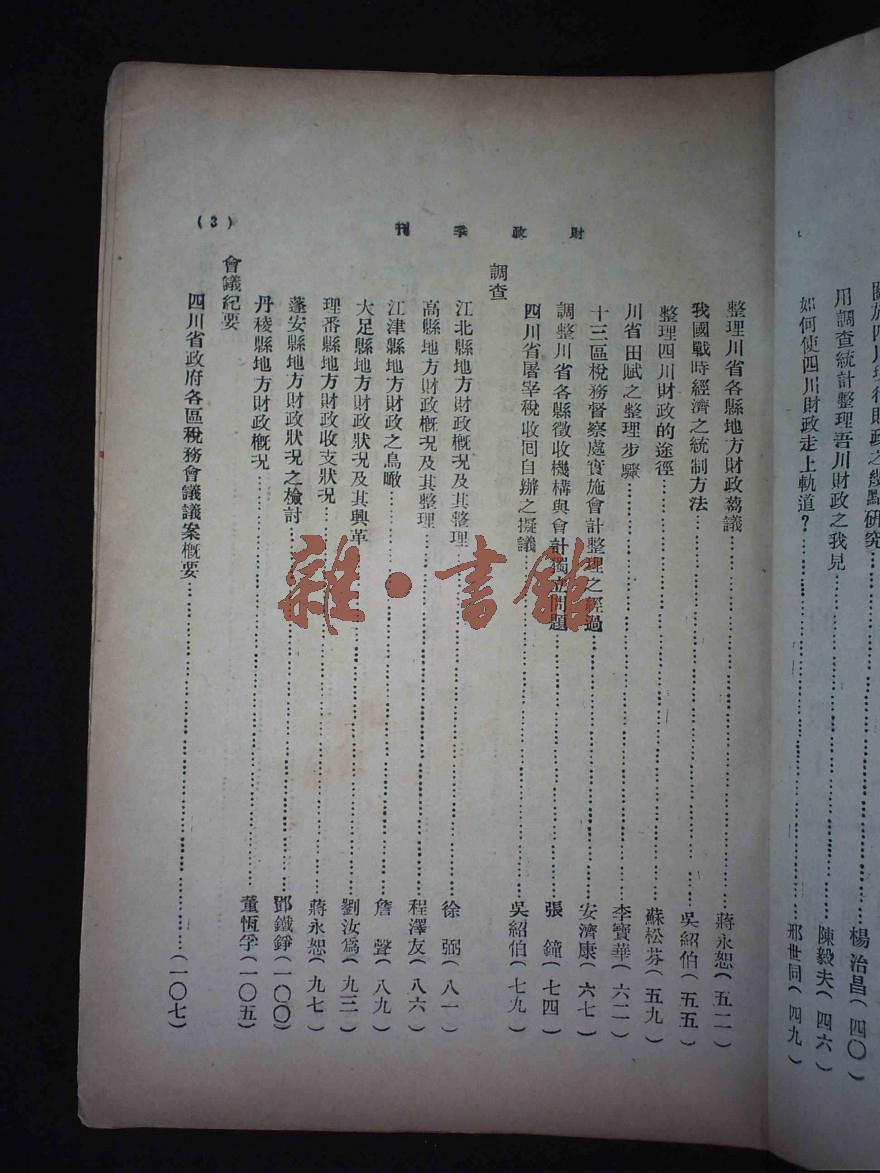 關於四川現行財政之幾點研究……楊治昌(四〇)
用調查統計整理吾川財政之我見……陳毅夫(四六)
如何使四川財政走上軌道？……邢世同(四九)
財政季刊
(3)
整理川省各縣地方財政芻議……蔣永恕(五二)
我國戰時經濟之統制方法……吳紹伯(五五)
整理四川財政的途徑……蘇松芬(五九)
川省田賦之整理步驟……李寶華(六二)
十三區稅務督察處實施會計整理之經過……安濟康(六七)
調整川省各縣徵收機構與會計獨立問題……張鐘(七四)
四川省屠宰稅收囘自辦之擬議……吳紹伯(七九)
調查
江北縣地方財政槪況及其整理……徐弼(八一)
高縣地方財政槪況及其整理……程澤友(八六)
江津縣地方財政之鳥瞰……詹聲(八九)
大足縣地方財政狀況及其興革……劉汝爲(九三)
理番縣地方財政收支狀況……蔣永恕(九七)
蓬安縣地方財政狀況之檢討……鄧鐵錚(一〇〇)
丹棱縣地方財政槪況……董恆孚(一〇五)
會議紀要
四川省政府各區稅務會議議案槪要……(一〇七)
雜·書館